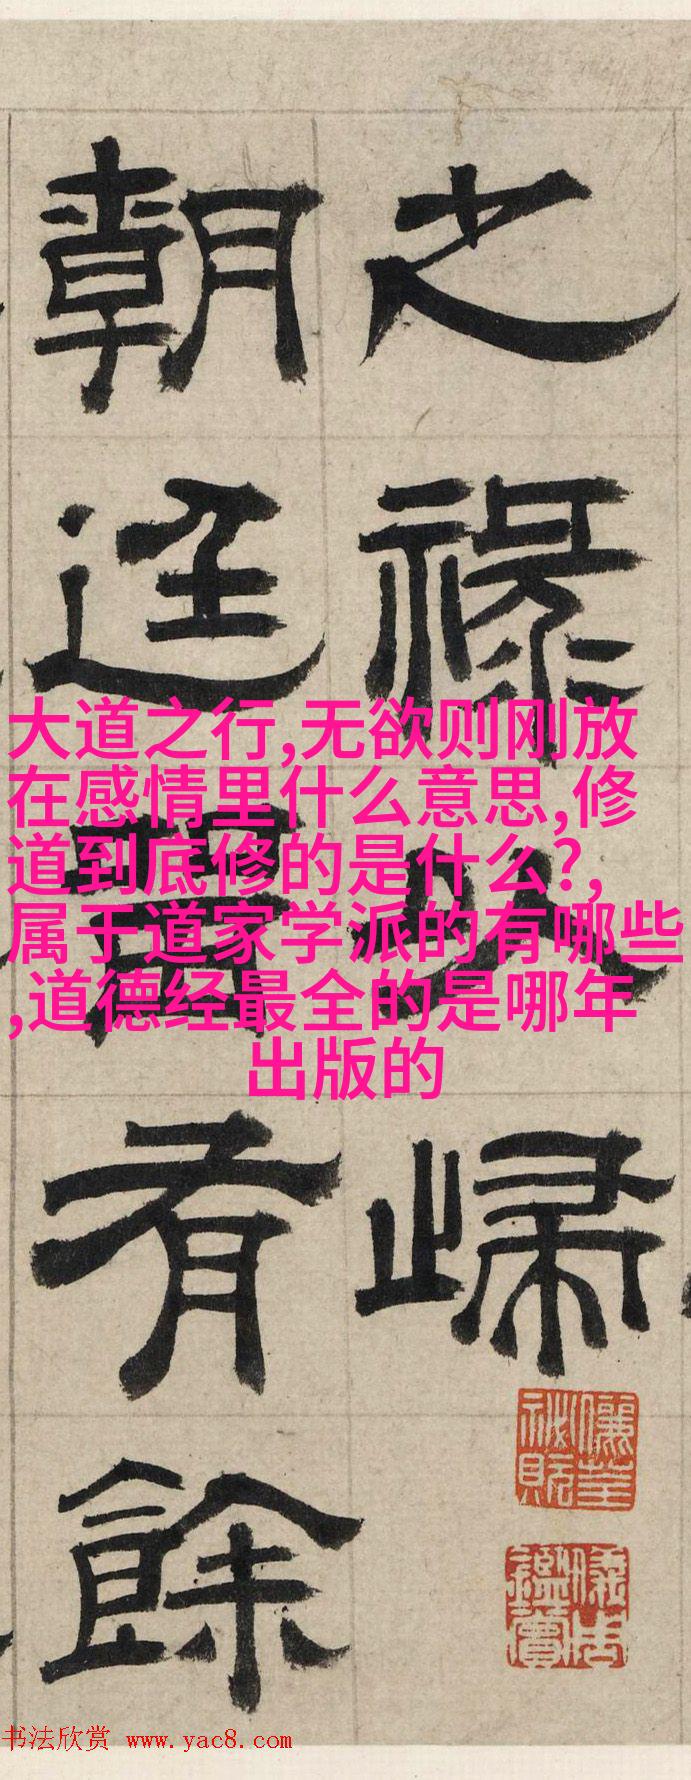 之祿以歸
朝廷有餘
大道之行,无欲则刚放
在感情里什么意思,修
道到底修的是什么?,
属于道家学派的有哪些
,道德经最全的是哪年
出版的
书法欣赏 www.yac8.com